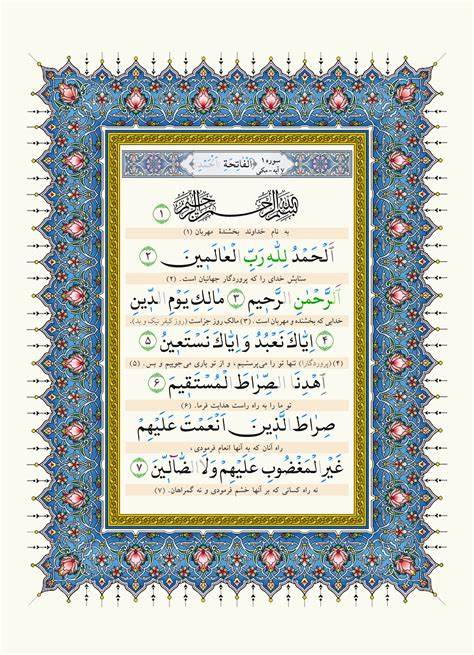 سوره ۱ اَلْفَاتِحَة
۷ آیه - مکی
بِسْمِ اللهِ الرَّحْمٰنِ الرَّحِيمِ ۱
به نام خداوند بخشندهٔ مهربان (۱)
اَلْحَمْدُ لِلّٰهِ رَبِّ الْعَالَمينَ ۲
ستایش خدای را که پروردگار جهانیان است. (۲)
اَلرَّحْمٰنِ الرَّحيمِ ۳ مَالِكِ يَوْمِ الدّينِ
خدایی که بخشنده و مهربان است. (۳) مالک روز جزاست (روز کیفر نیک و بد).
۴ اِيَّاكَ نَعْبُدُ وَ اِيَّاكَ نَسْتَعينُ ۵
(۴) (پروردگارا) تنها تو را می‌پرستیم، و از تو یاری می‌جوییم و بس. (۵)
اِهْدِنَا الصِّرَاطَ الْمُسْتَقيمَ ۶
تو ما را به راه راست هدایت فرما. (۶)
صِرَاطَ الَّذينَ اَنْعَمْتَ عَلَيْهِمْ
راه آنان که به آنها انعام فرمودی،
غَيْرِ الْمَغْضُوبِ عَلَيْهِمْ وَلَا الضَّالّينَ ۷
نه راه کسانی که بر آنها خشم فرمودی و نه گمراهان. (۷)